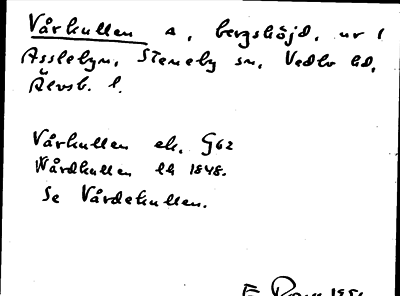 Vårkullen a, bergshöjd, nr 1
Asslebyn, Steneby sn, Vedbo hd,
Älvsb. l.
Vårkullen ek. G62
Wårdkullen lk 1848.
Se Vårdekullen.
E.